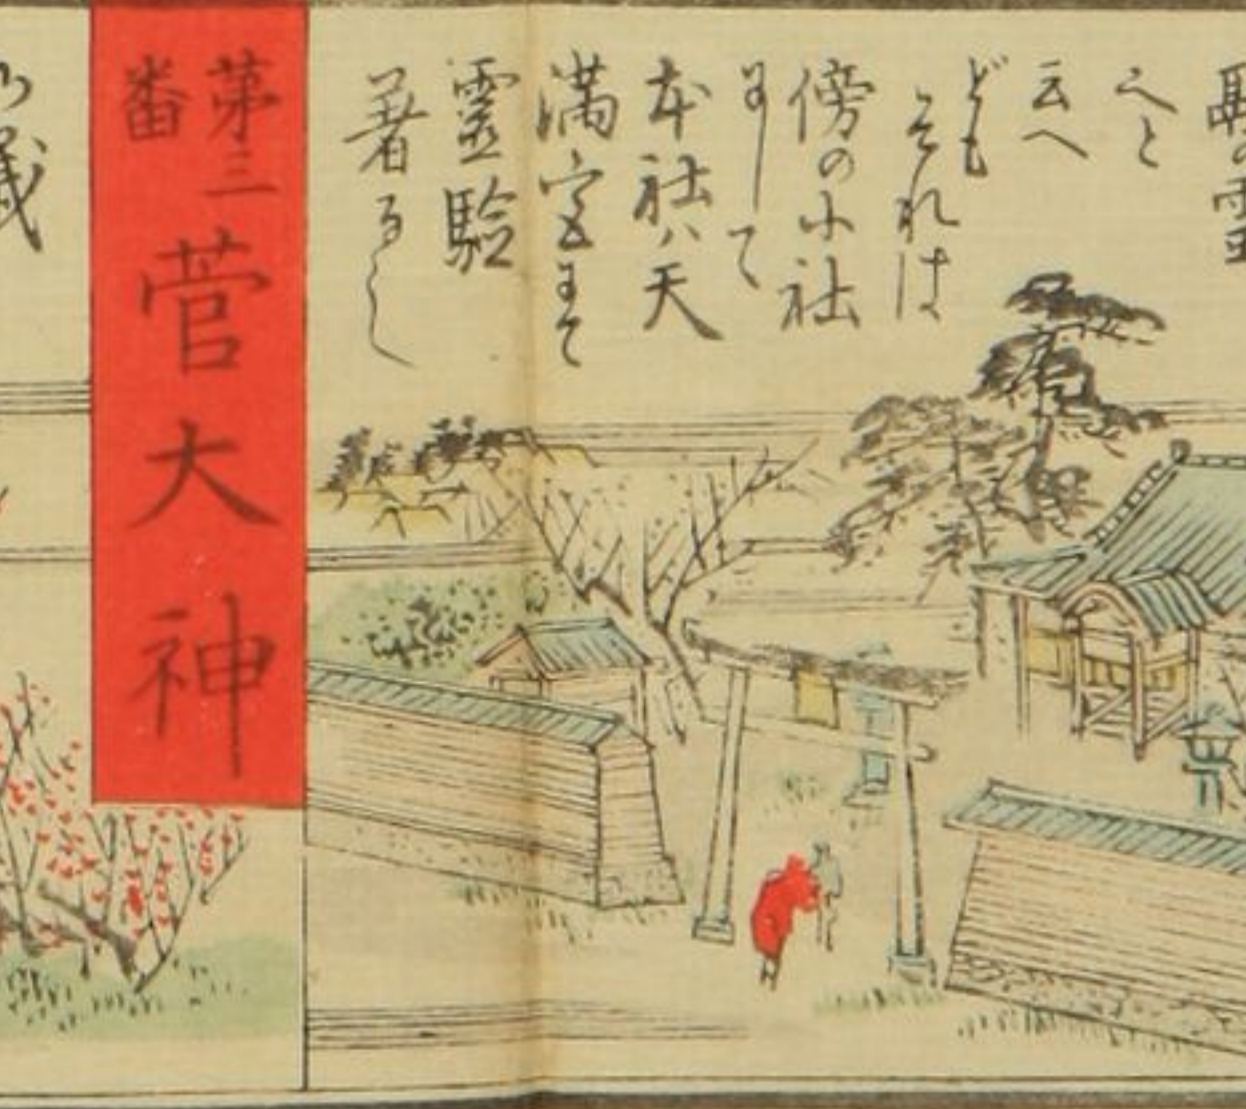 と
云へ
ども
それは
傍の小社
にして
本社ハ天
満宮にて
霊験
著るし
第三
番
菅大神